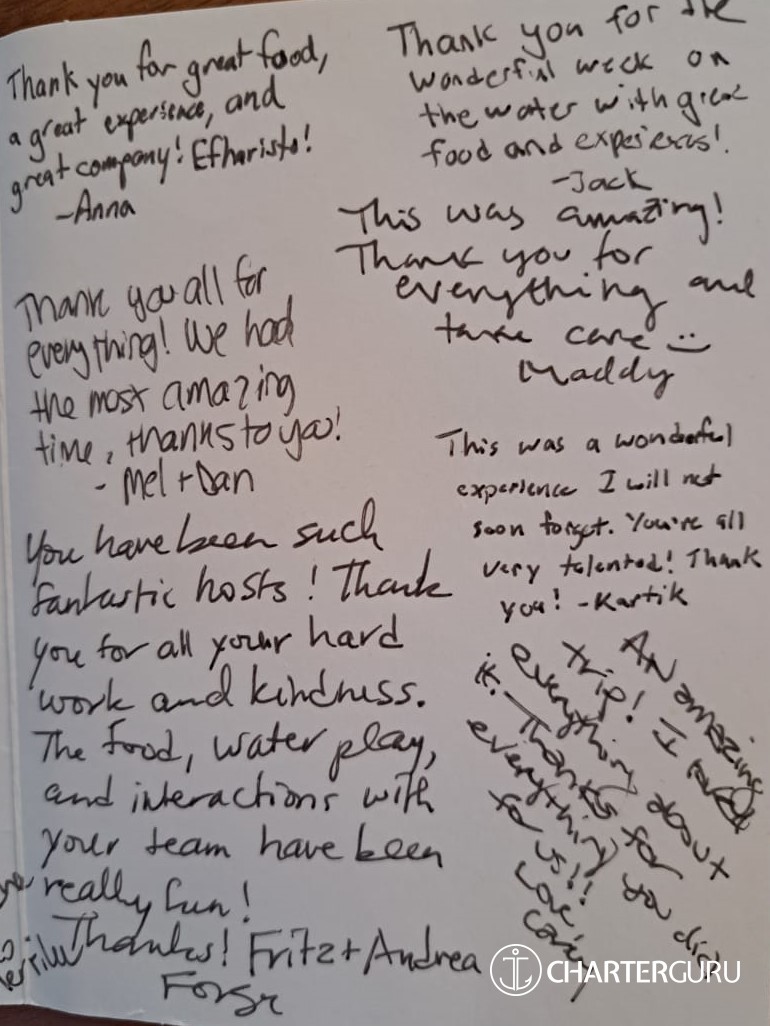 Thank you for great food,
a great experience, and
great company! Efharisto!
-Anna
Thank you for the
wonderful week on
the water with great
food and experiences!
-Jack
This was amazing!
Thank you for
everything and
take care :)
Maddy
Thank you all for
everything! We had
the most amazing
time, thanks to you!
- Mel + Dan
This was a wonderful
experience I will not
soon forget. You're all
very talented! Thank
you! -Kartik
You have been such
fantastic hosts! Thank
you for all your hard
work and kindness.
The food, water play,
and interactions with
your team have been
really fun!
Thanks! Fritz + Andrea
An amazing
trip! I loved
everything about
it. Thanks for
everything you did
for us!!
Love,
CHARTERGURU